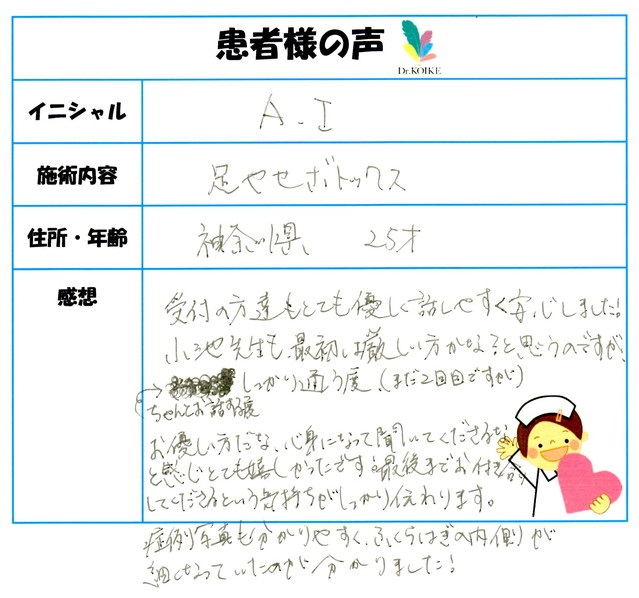 患者様の声
Dr.KOIKE
イニシャル
A.I
施術内容
足やせボトックス
住所・年齢
神奈川県、 25才
感想
受付の方達もとても優しく話しやすく安心しました!
小池先生も、最初は厳しい方かな?と思うのですが、
しっかり通う度、(まだ2回目ですが)
ちゃんとお話する度
お優しい方だな、心身になって聞いてくださるな
と感じとても嬉しかったです。最後までお付き合い
してくださるという気持ちがしっかり伝わります。
症例写真も分かりやすく、ふくらはぎの内側が
細くなっていたのが分かりました!